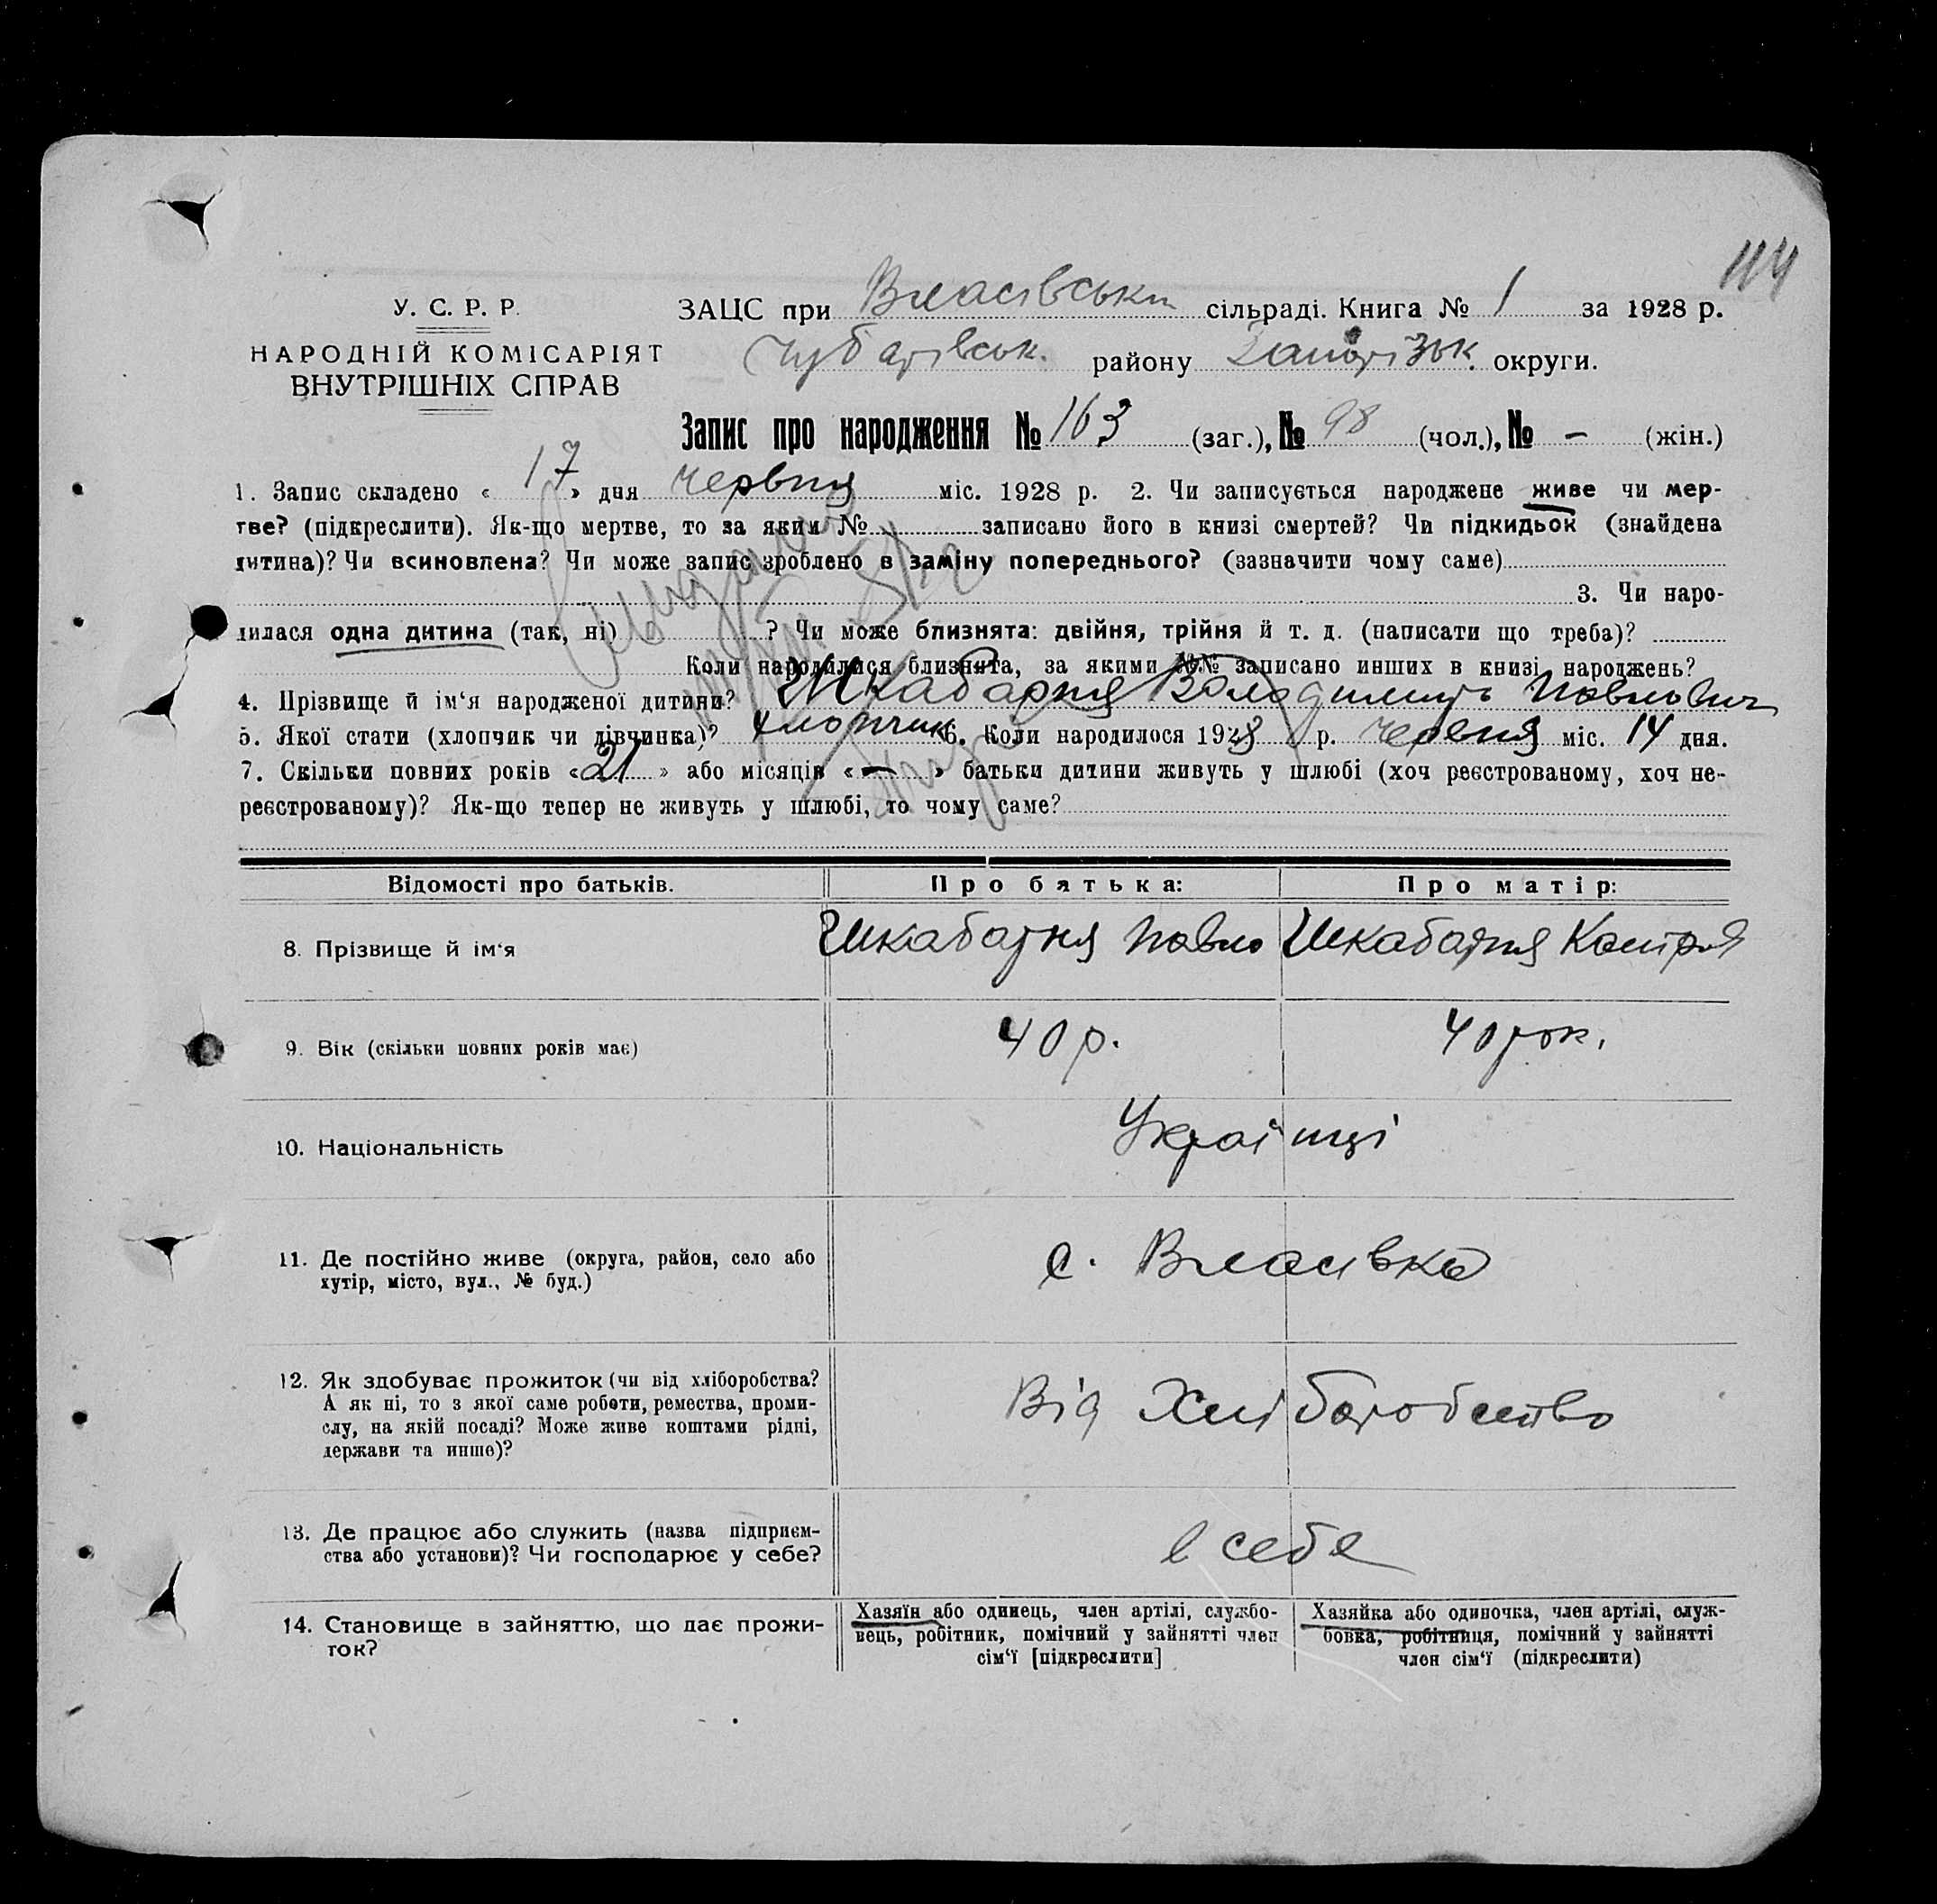 114
У. С. Р. Р.
НАРОДНІЙ КОМІСАРІЯТ
ВНУТРІШНІХ СПРАВ
ЗАЦС при Власівськи сільраді. Книга № 1 за 1928 р.
Чубарівськ. району Запорізьк. округи.
Запис про народження № 163 (заг.), № 98 (чол.), № – (жін.)
1. Запис складено « 17 » дня червня міс. 1928 р. 2. Чи записується народжене живе чи мер-
тве? (підкреслити). Як-що мертве, то за яким № записано його в книзі смертей? Чи підкидьок (знайдена
дитина)? Чи всиновлена? Чи може запис зроблено в заміну попереднього? (зазначити чому саме)
3. Чи наро-
дилася одна дитина (так, ні) ? Чи може близнята: двійня, трійня й т. д. (написати що треба)?
Коли народилися близнята, за якими №№ записано инших в книзі народжень?
4. Прізвище й ім'я народженої дитини? Шкабарня Володимир Павлович
5. Якої стати (хлопчик чи дівчинка)? Хлопчик 6. Коли народилося 1928 р. червня міс. 14 дня.
7. Скільки повних років « 21 » або місяців « – » батьки дитини живуть у шлюбі (хоч реєстрованому, хоч не-
реєстрованому)? Як-що тепер не живуть у шлюбі, то чому саме?
Відомості про батьків. Про батька: Про матір:
8. Прізвище й ім'я Шкабарня Павло Шкабарня
9. Вік (скільки повних років має) 40 р. 40 рок.
10. Національність Українці
11. Де постійно живе (округа, район, село або
хутір, місто, вул., № буд.) с. Власівка
12. Як здобуває прожиток (чи від хліборобства?
А як ні, то з якої саме роботи, ремества, проми-
слу, на якій посаді? Може живе коштами рідні,
держави та инше)? Від Хліборобство
13. Де працює або служить (назва підприєм-
ства або установи)? Чи господарює у себе? в себе
14. Становище в зайняттю, що дає прожи-
ток?
Хазяїн або одинець, член артілі, службо-
вець, робітник, помічний у зайнятті член
сім'ї [підкреслити]
Хазяйка або одиночка, член артілі, служ-
бовка, робітниця, помічний у зайнятті
член сім'ї (підкреслити)